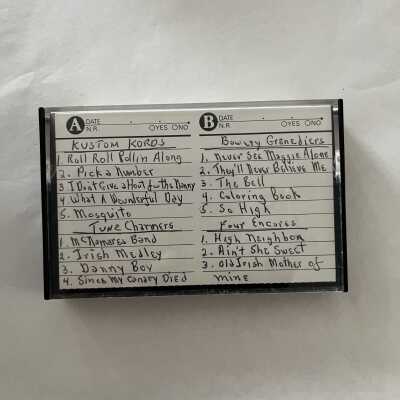 A DATE
N.R. OYES ONO
KUSTOM KORDS
1. Roll Roll Rollin Along
2. Pick a Number
3 I Don't Give a Hoot for the Nanny
4 What A Wonderful Day
5. Mosquito
Tune Charmers
1. McNamares Band
2. Irish Medley
3. Danny Boy
4. Since my Canary Died
B DATE
N.R. OYES ONO
Bowery Grenediers
1. Never See Maggie Alone
2. They'll Never Believe Me
3. The Bell
4. Coloring Book
5. So High
Four Encores
1. High Neighbor
2. Ain't She Sweet
3. Old Irish Mother of
mine